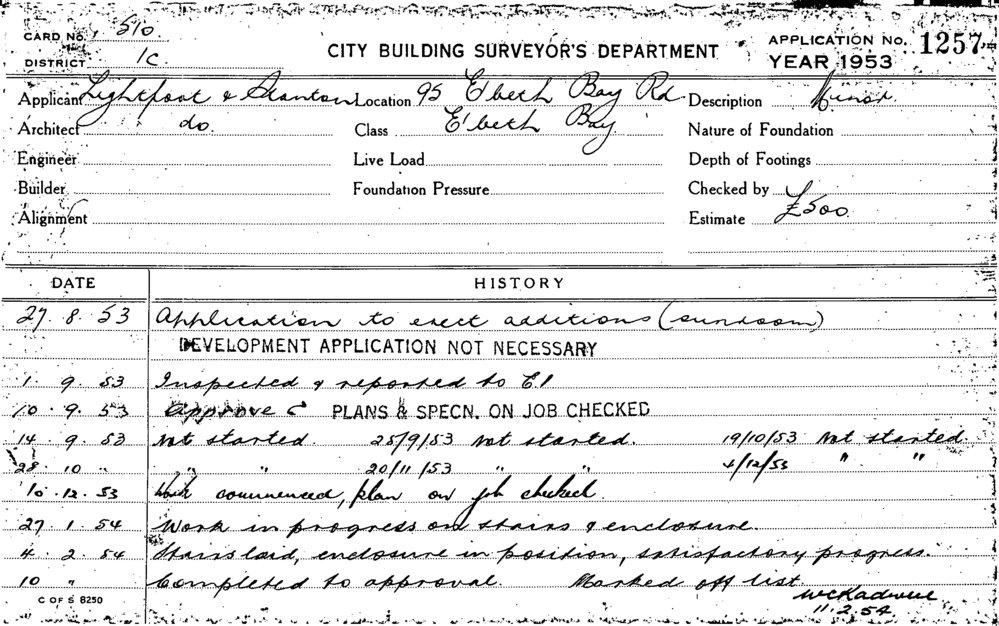 CARD No. 510
DISTRICT 1C
CITY BUILDING SURVEYOR'S DEPARTMENT
APPLICATION No. 1257
YEAR 1953
Applicant Lightfoot & Stanton Location 95 E'beth Bay Rd Description Minor
Architect do. Class E'beth Bay Nature of Foundation
Engineer Live Load Depth of Footings
Builder Foundation Pressure Checked by
Alignment Estimate £500
DATE HISTORY
27. 8. 53 Application to erect additions (sunroom)
DEVELOPMENT APPLICATION NOT NECESSARY
1. 9. 53 Inspected & reported to E1
10. 9. 53 Approve PLANS & SPECN. ON JOB CHECKED
14 9. 53 Not started. 25/9/53 Not started. 19/10/53 Not started
28. 10 " " " 20/11/53 " " 4/12/53 " "
10. 12. 53 Work commenced, plan on job checked.
27 1. 54 Work in progress on stairs & enclosure.
4. 2. 54 Stairs laid, enclosure in position, satisfactory progress.
10 " Completed to approval. Marked off list.
11.2.54
C OF S 8250